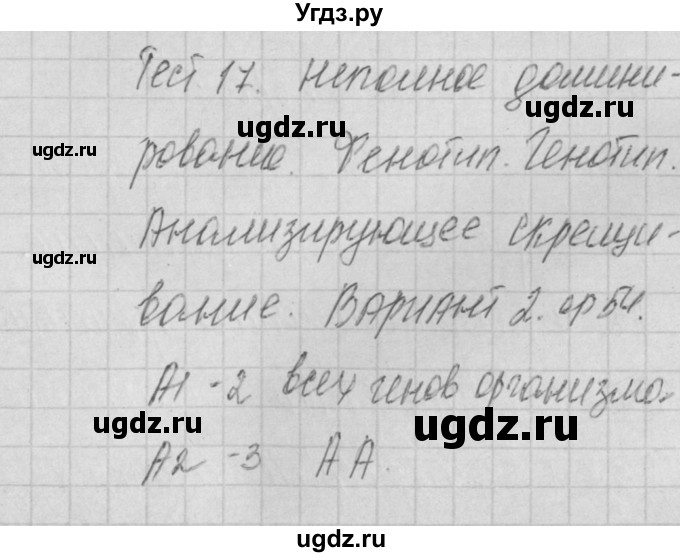 Угдз.ру
Тест 17. Неполное домини-
ugdz.ru ugdz.ru
рование. Фенотип. Генотип.
Анализирующее скрещи-
ugdz.ru
вание. Вариант 2. ср 54.
А1 -2 всех генов организма.
ugdz.ru ugdz.ru
А2 -3 АА.
ugdz.ru